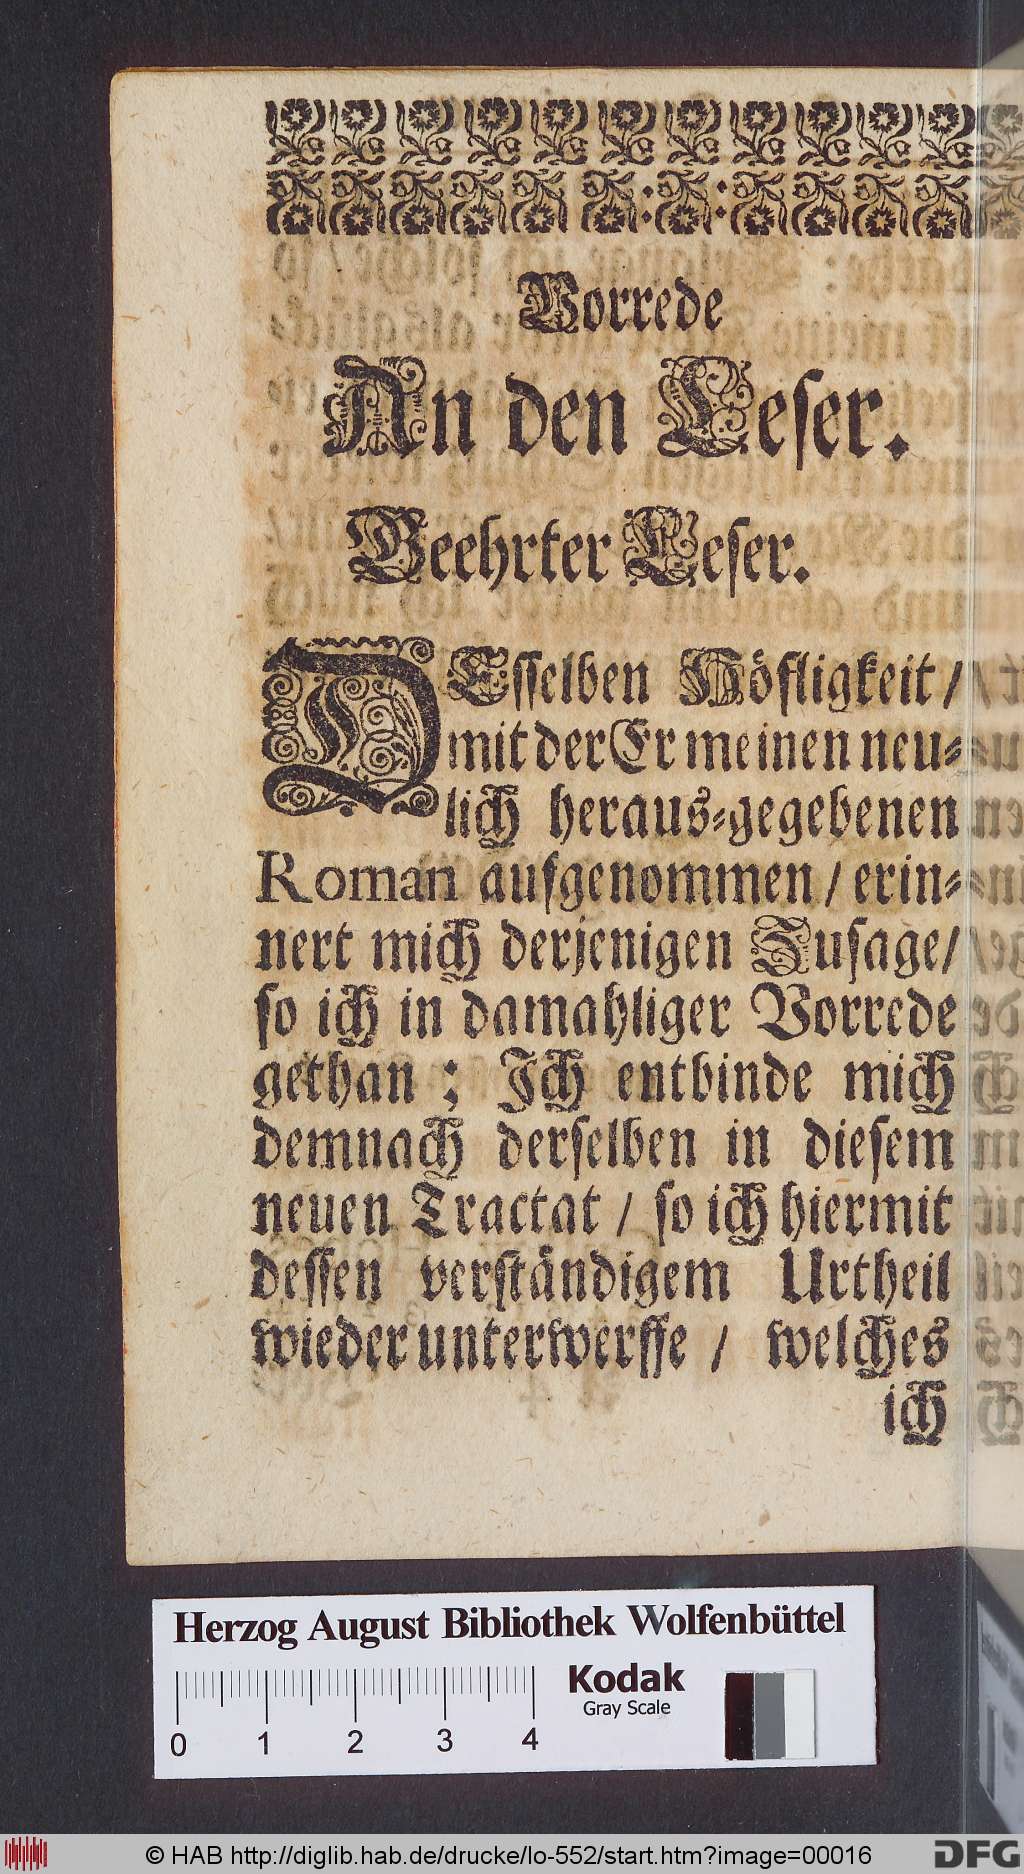 Vorrede
An den Leser.
Geehrter Leser.
DEsselben Höfligkeit /
mit der Er meinen neu⸗
lich heraus⸗gegebenen
Roman aufgenommen / erin⸗
nert mich derjenigen Zusage /
so ich in damahliger Vorrede
gethan ; Ich entbinde mich
demnach derselben in diesem
neuen Tractat / so ich hiermit
dessen verständigem Urtheil
wieder unterwerffe / welches
ich
Herzog August Bibliothek Wolfenbüttel
Kodak
Gray Scale
0 1 2 3 4
© HAB http://diglib.hab.de/drucke/lo-552/start.htm?image=00016
DFG